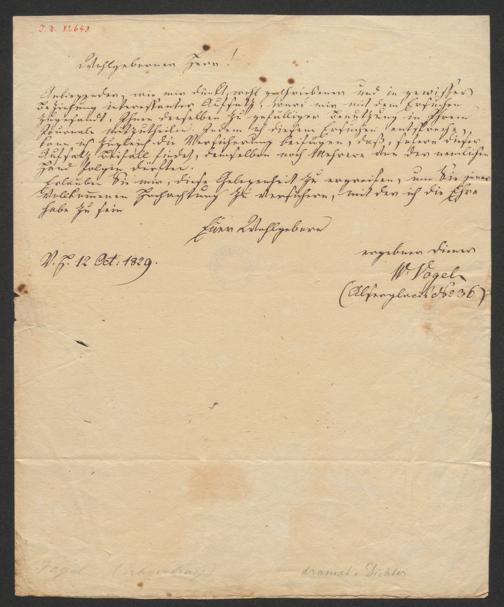 I. N. 12643
Wohlgeborner Herr!
Anliegender, wie mir dünkt, wohl geschriebener und in gewisser
Beziehung interessanter Aufsatz, ward mir mit dem Ersuchen
zugesandt, Ihnen denselben zu gefälliger Benützung in Ihrem
Journale mitzutheilen. Indem ich diesem Ersuchen entspreche,
kann ich zugleich die Versicherung beifügen, daß, sofern dieser
Aufsatz Beifall findet, demselben noch Mehrere von der nemlichen
Hand folgen dürften.
Erlauben Sie mir, diese Gelegenheit zu ergreifen, um Sie jener
vollkommenen Hochachtung zu versichern, mit der ich die Ehre
habe zu sein
Euer Wohlgeborn
ergebner Diener
V. H. 12 Oct. 1829.
W. Vogel
(Alserplatz No 36)
Vogel
dramat. Dichter